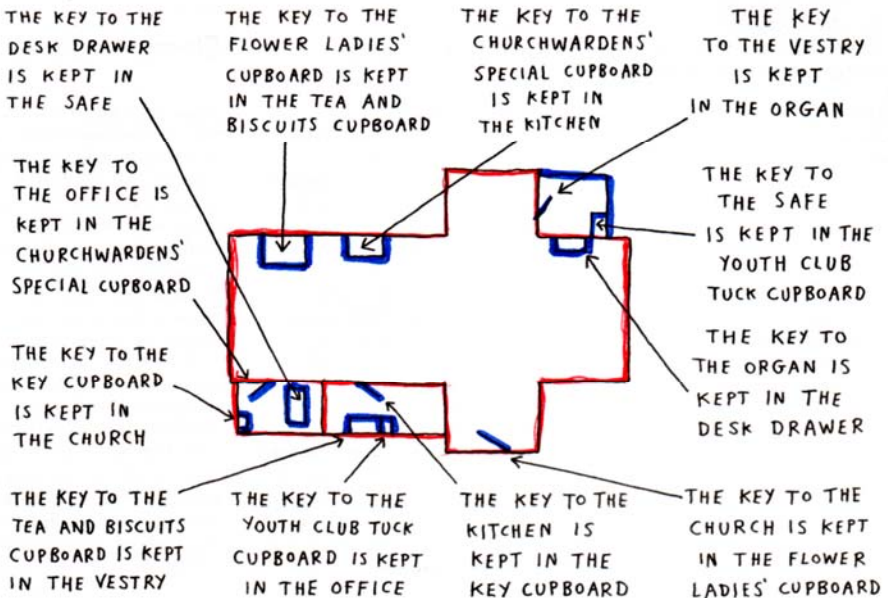 THE KEY TO THE
DESK DRAWER
IS KEPT IN
THE SAFE
THE KEY TO THE
FLOWER LADIES'
CUPBOARD IS KEPT
IN THE TEA AND
BISCUITS CUPBOARD
THE KEY TO THE
CHURCHWARDENS'
SPECIAL CUPBOARD
IS KEPT IN
THE KITCHEN
THE KEY
TO THE VESTRY
IS KEPT
IN THE ORGAN
THE KEY TO
THE OFFICE IS
KEPT IN THE
CHURCHWARDENS'
SPECIAL CUPBOARD
THE KEY TO
THE SAFE
IS KEPT IN THE
YOUTH CLUB
TUCK CUPBOARD
THE KEY TO THE
KEY CUPBOARD
IS KEPT IN
THE CHURCH
THE KEY TO
THE ORGAN IS
KEPT IN THE
DESK DRAWER
THE KEY TO THE
TEA AND BISCUITS
CUPBOARD IS KEPT
IN THE VESTRY
THE KEY TO THE
YOUTH CLUB TUCK
CUPBOARD IS KEPT
IN THE OFFICE
THE KEY TO THE
KITCHEN IS
KEPT IN THE
KEY CUPBOARD
THE KEY TO THE
CHURCH IS KEPT
IN THE FLOWER
LADIES' CUPBOARD